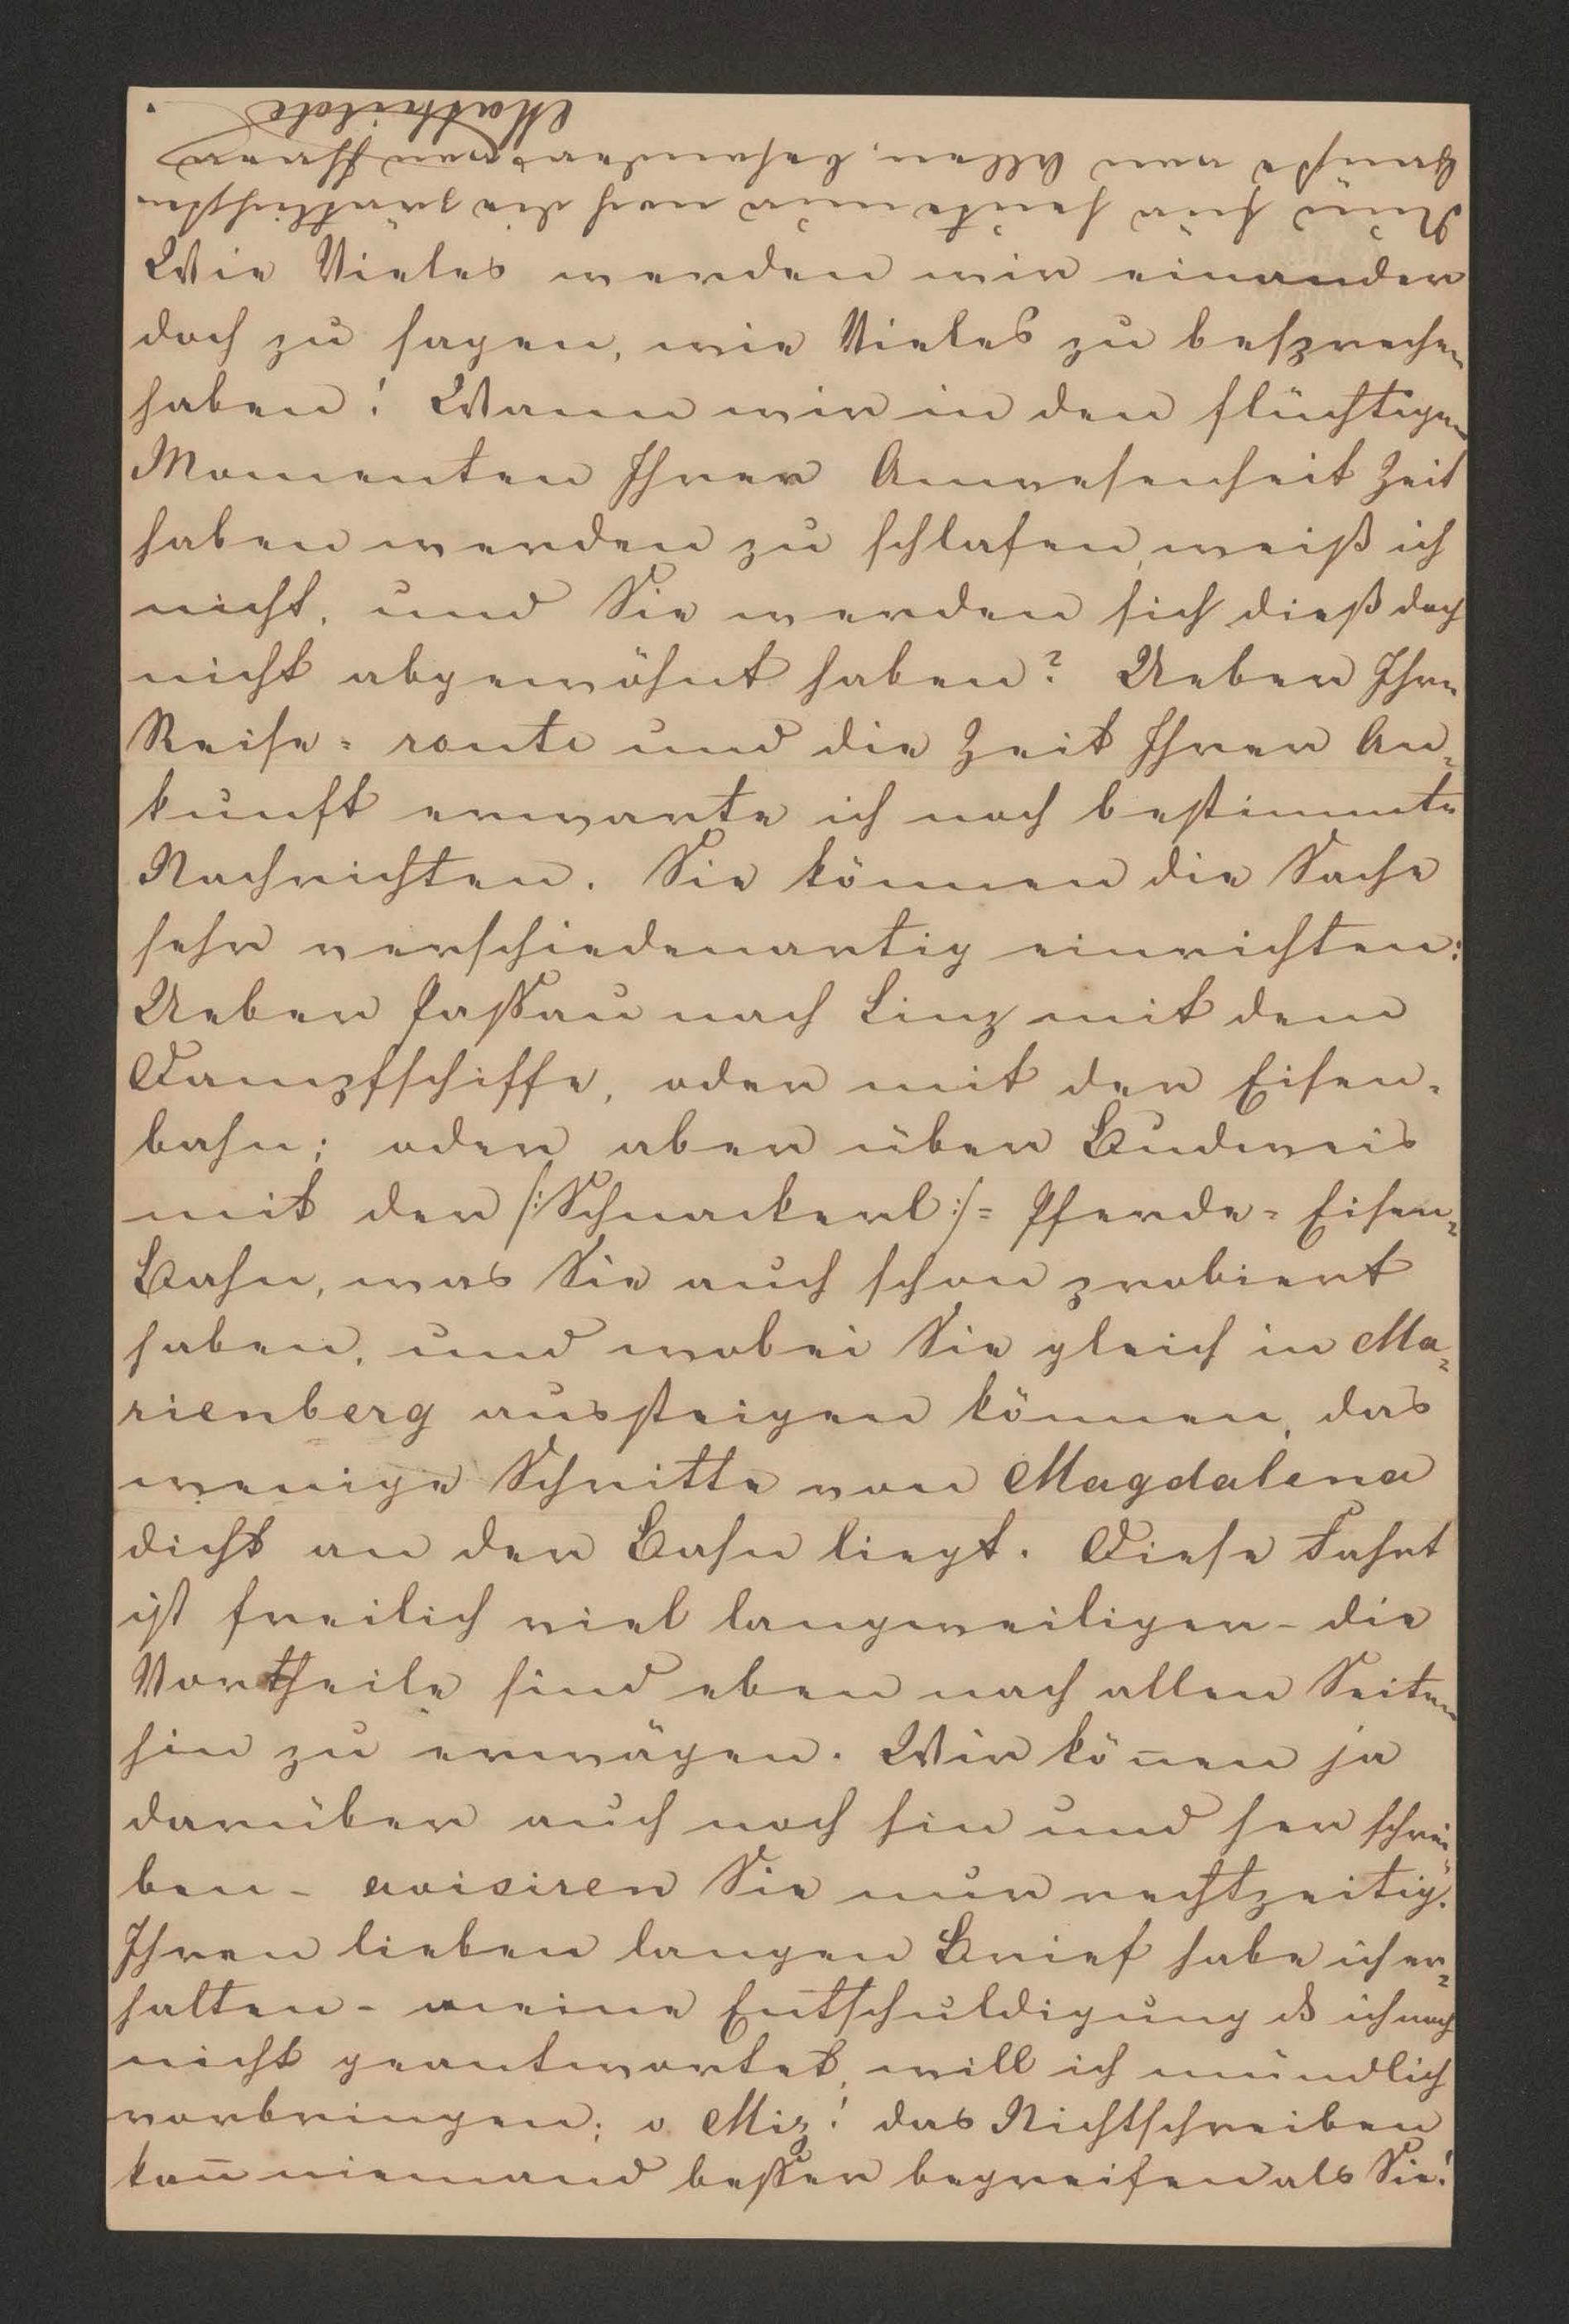 Wie Vieles werden wir einander
doch zu sagen, wie Vieles zu besprechen
haben! Wann wir in den flüchtigen
Momenten Ihrer Anwesenheit Zeit
haben werden zu schlafen, weiß ich
nicht, und Sie werden sich dieß doch
nicht abgewöhnt haben? Ueber Ihre
Reise=route und die Zeit Ihrer An=
kunft erwarte ich noch bestimmte
Nachrichten. Sie können die Sache
sehr verschiedenartig einrichten:
Ueber Passau nach Linz mit dem
Dampfschiffe, oder mit der Eisen=
bahn; oder aber über Budweis
mit der /:Schnackerl:/=Pferde=Eisen=
Bahn, was Sie auch schon probiert
haben, und wobei Sie gleich in Ma=
rienberg aussteigen können, das
wenige Schritte von Magdalena
dicht an der Bahn liegt. Diese Fahrt
ist freilich viel langweiliger - die
Vortheile sind eben nach allen Seiten
hin zu erwägen. Wir kön̄en ja
darüber auch noch hin und her schrei=
ben - avisiren Sie nur rechtzeitig.
Ihren lieben langen Brief habe ich er=
halten - meine Entschuldigung ds ich noch
nicht geantwortet, will ich mündlich
vorbringen; o Miz! das Nichtschreiben
kan̄ niemand besser begreifen als Sie!
Nun für heute nur noch die zärtlichsten
Grüße von Allen, besonders von Ihrer
Mathilde